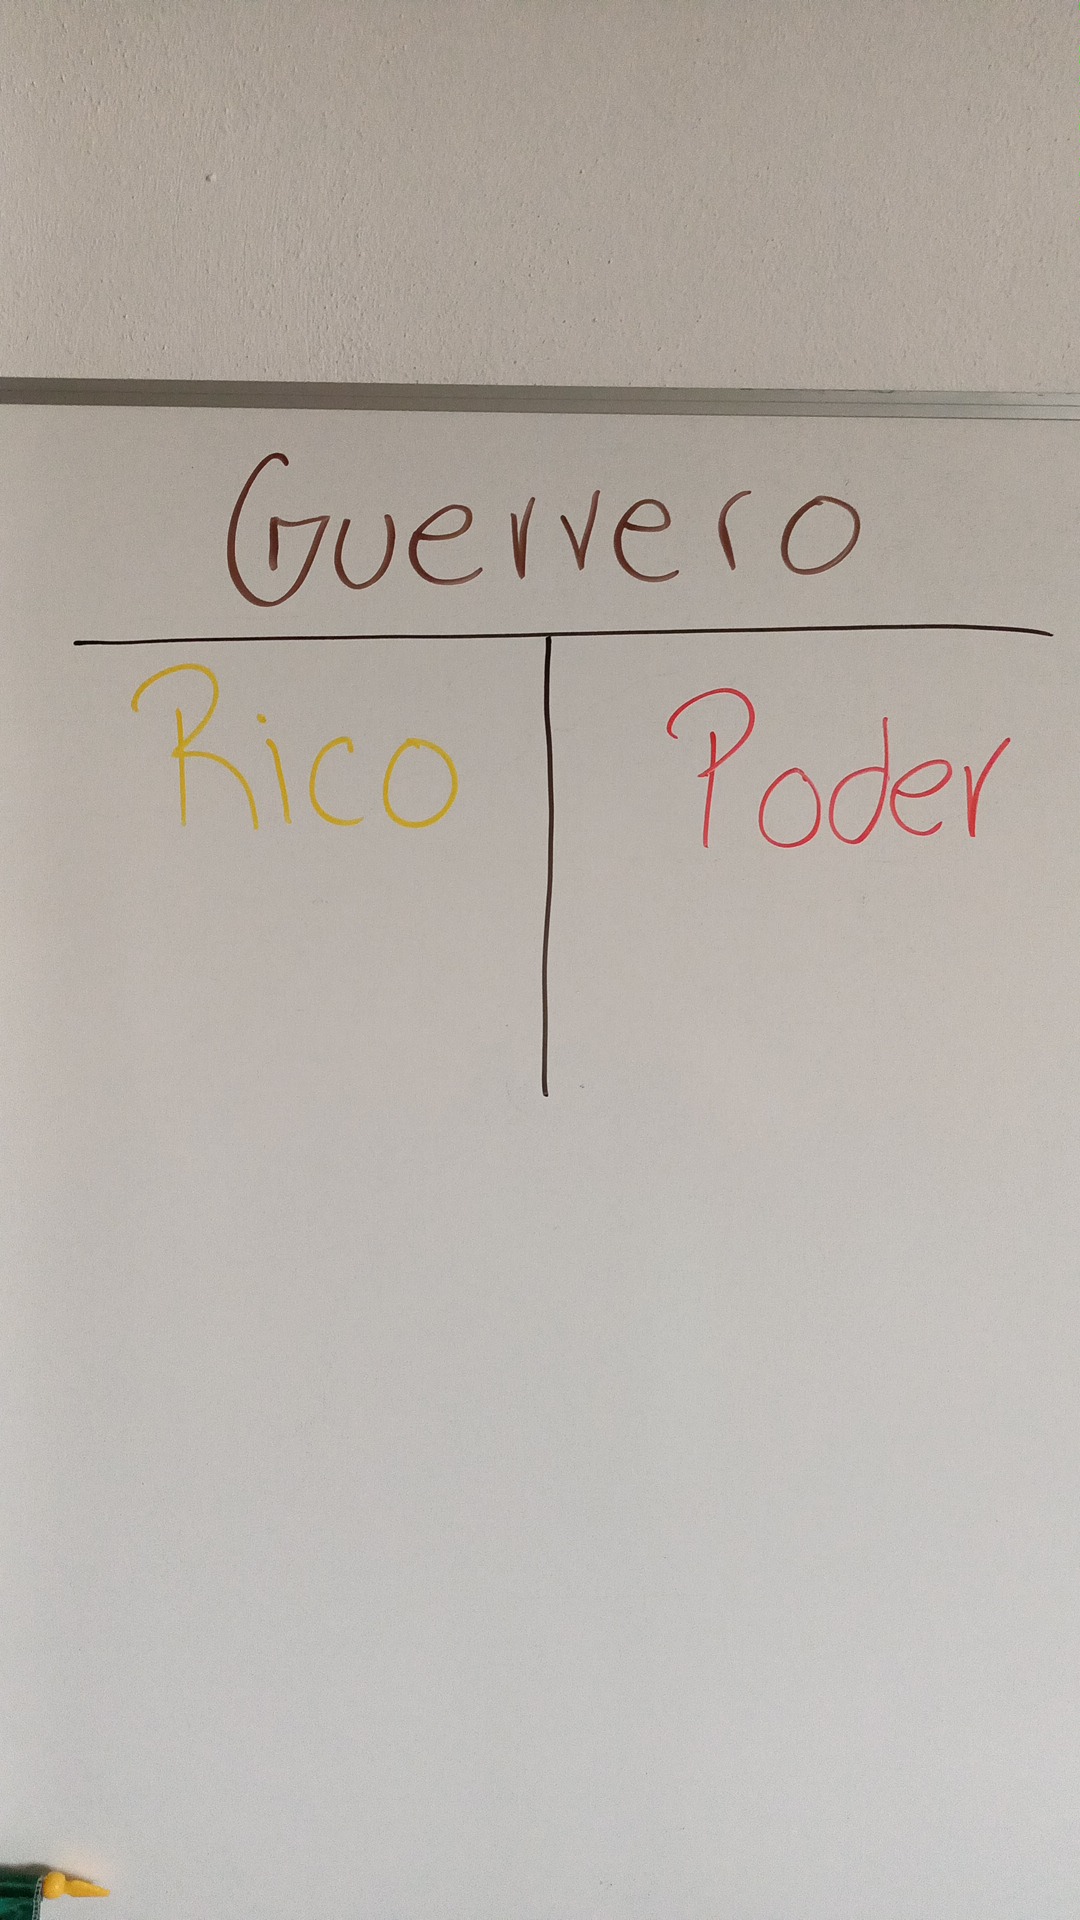 Guerrero
Rico
Poder